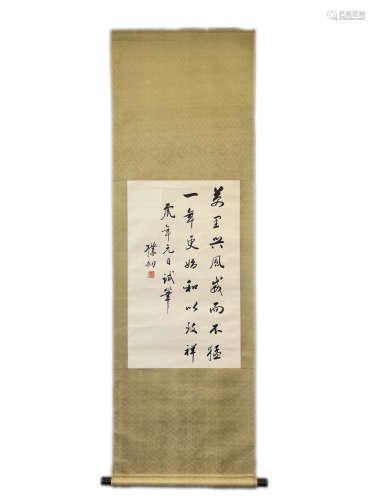 万里兴风威而不猛
一年更始和以致祥
虎年元日试笔
樸初